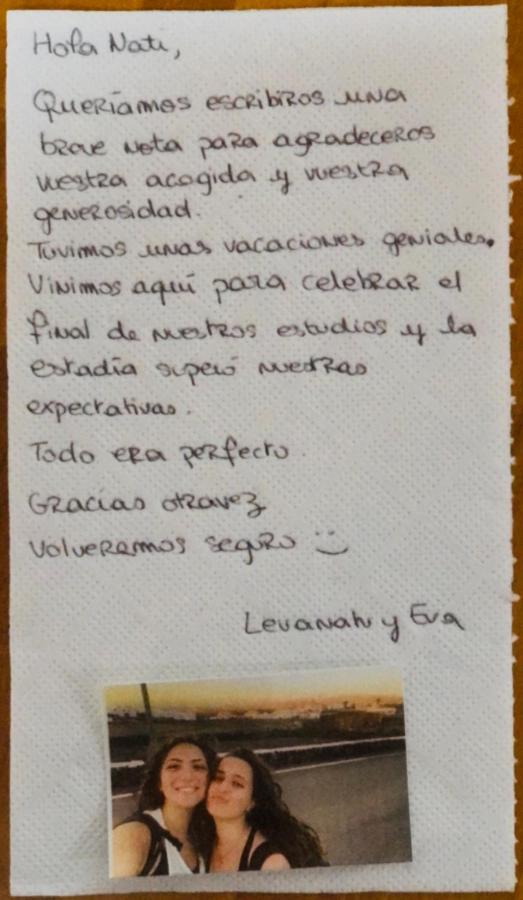 Hola Nati,
Queríamos escribiros una
breve nota para agradeceros
vuestra acogida y vuestra
generosidad.
Tuvimos unas vacaciones geniales.
Vinimos aquí para celebrar el
final de nuestros estudios y la
estadía superó nuestras
expectativas.
Todo era perfecto.
Gracias otravez
Volveremos seguro
y Eva